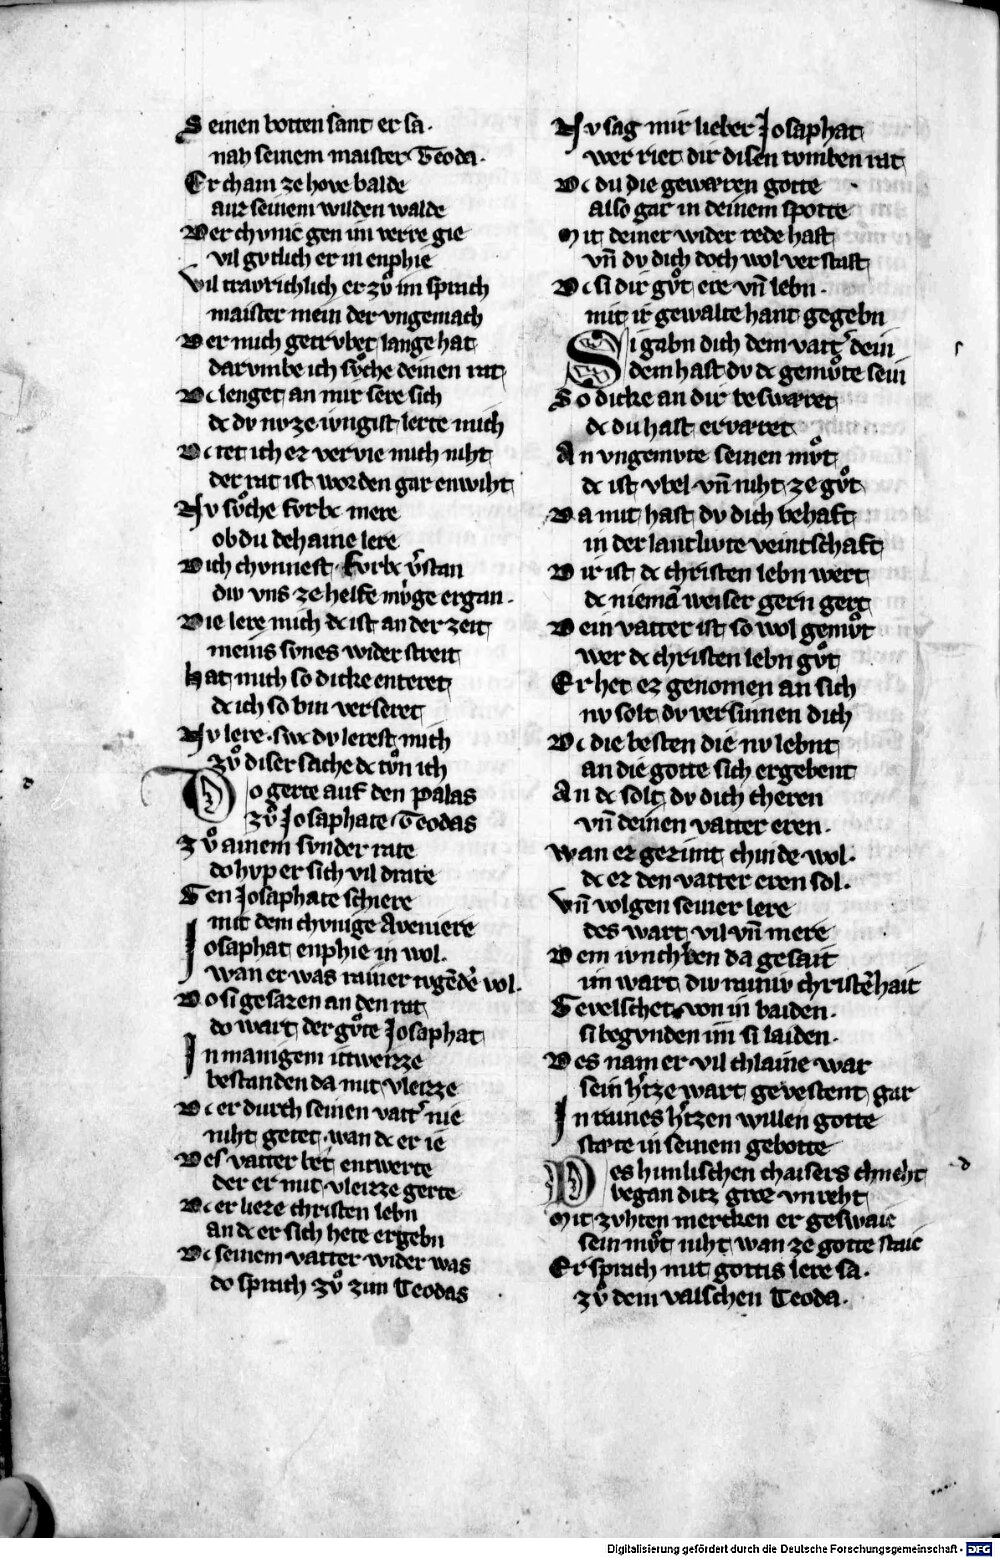 Seinen botten sant er sa·
nah seinem maister Teoda·
Er cham ze hove balde
auz seinem wilden walde
Der chvnic gen im verre gie
vil gvtlich er in enphie
Vil travrichlich er zvͦ im sprach
maister mein der vngemach
Der mich getrvbet lange hat
darvmbe ich svͦche deinen rat
Dc lenget an mir sere sich
dc dv nv ze ivngist lerte mich
Dc tet ich ez vervie mich niht
der rat ist worden gar enwiht
Nv svͦche fvrbc mere
ob du dehaine lere
Dich chvnnest fvrbc v̓stan
div vns ze helfe mvͦge ergan·
Die lere mich dc ist an der zeit
meins svnes wider streit
Hat mich so dicke enteret
dc ich so bin verseret
Nv lere swc dv lerest mich
zvͦ diser sache dc tvͦn ich
Do gerte auf den palas
zvͦ Josaphate Teodas
Zvͦ ainem svnder rate
do hvp er sich vil drate
Gen Josaphate schiere
mit dem chvnige Aveniere
Josaphat enphie in wol·
wan er was rainer tvgēde vol·
Do si gesazen an den rat
do wart der gvͦte Josaphat
In manigem itweizze
bestanden da mit vleizze
Dc er durch seinen vatt̓ nie
niht getet wan dc er ie
Des vatter bet entwerte
der er mit vleizze gerte
Dc er lieze christen lebn
an dc er sich hete ergebn
Dc seinem vatter wider was
do sprach zvͦ zim Teodas
Nv sag mir lieber Josaphat
wer riet dir disen tvmben rat
Dc du die gewæren gotte
also gar in deinem spotte
Mit deiner wider rede hast
vn̄ dv dich doch wol verstast
Dc si dir gvͦt ere vn̄ lebn·
mit ir gewalte hant gegebn
Si gabn dich dem vatt̓ dein
dem hast dv dc gemvͦte sein
So dicke an dir beswæret
dc du hast erværet
An vngemvte seinen mvͦt
dc ist vbel vn̄ niht ze gvͦt
Da mit hast dv dich behaft
in der lantlivte veintschaft
Dir ist dc christen lebn wert
dc niemā weiser gern gert
Dein vatter ist so wol gemvͦt
wer dc christen lebn gvͦt
Er het ez genomen an sich
nv solt dv versinnen dich
Dc die besten die nv lebnt
an die gotte sich ergebent
An dc solt dv dich cheren
vn̄ deinen vatter eren·
Wan ez gezimt chinde wol·
dc ez den vatter eren sol·
Vn̄ volgen seiner lere
des wart vil vn̄ mere
Dem ivnch̓ren da gesait
im wart div rainiv christēhait
Gevelschet von in baiden·
si begvnden im si laiden·
Des nam er vil chlaine war
sein h̓tze wart gevestent gar
In raines h̓tzen willen gotte
stæte in seinem gebotte
Des himlischen chaisers chneht
began ditz groz vnreht
Mit zvhten mercken er geswaic
sein mvͦt niht wan ze gotte staic
Er sprach mit gottis lere sa·
zvͦ dem valschen Teoda·
Digitalisierung gefördert durch die Deutsche Forschungsgemeinschaft - DFG